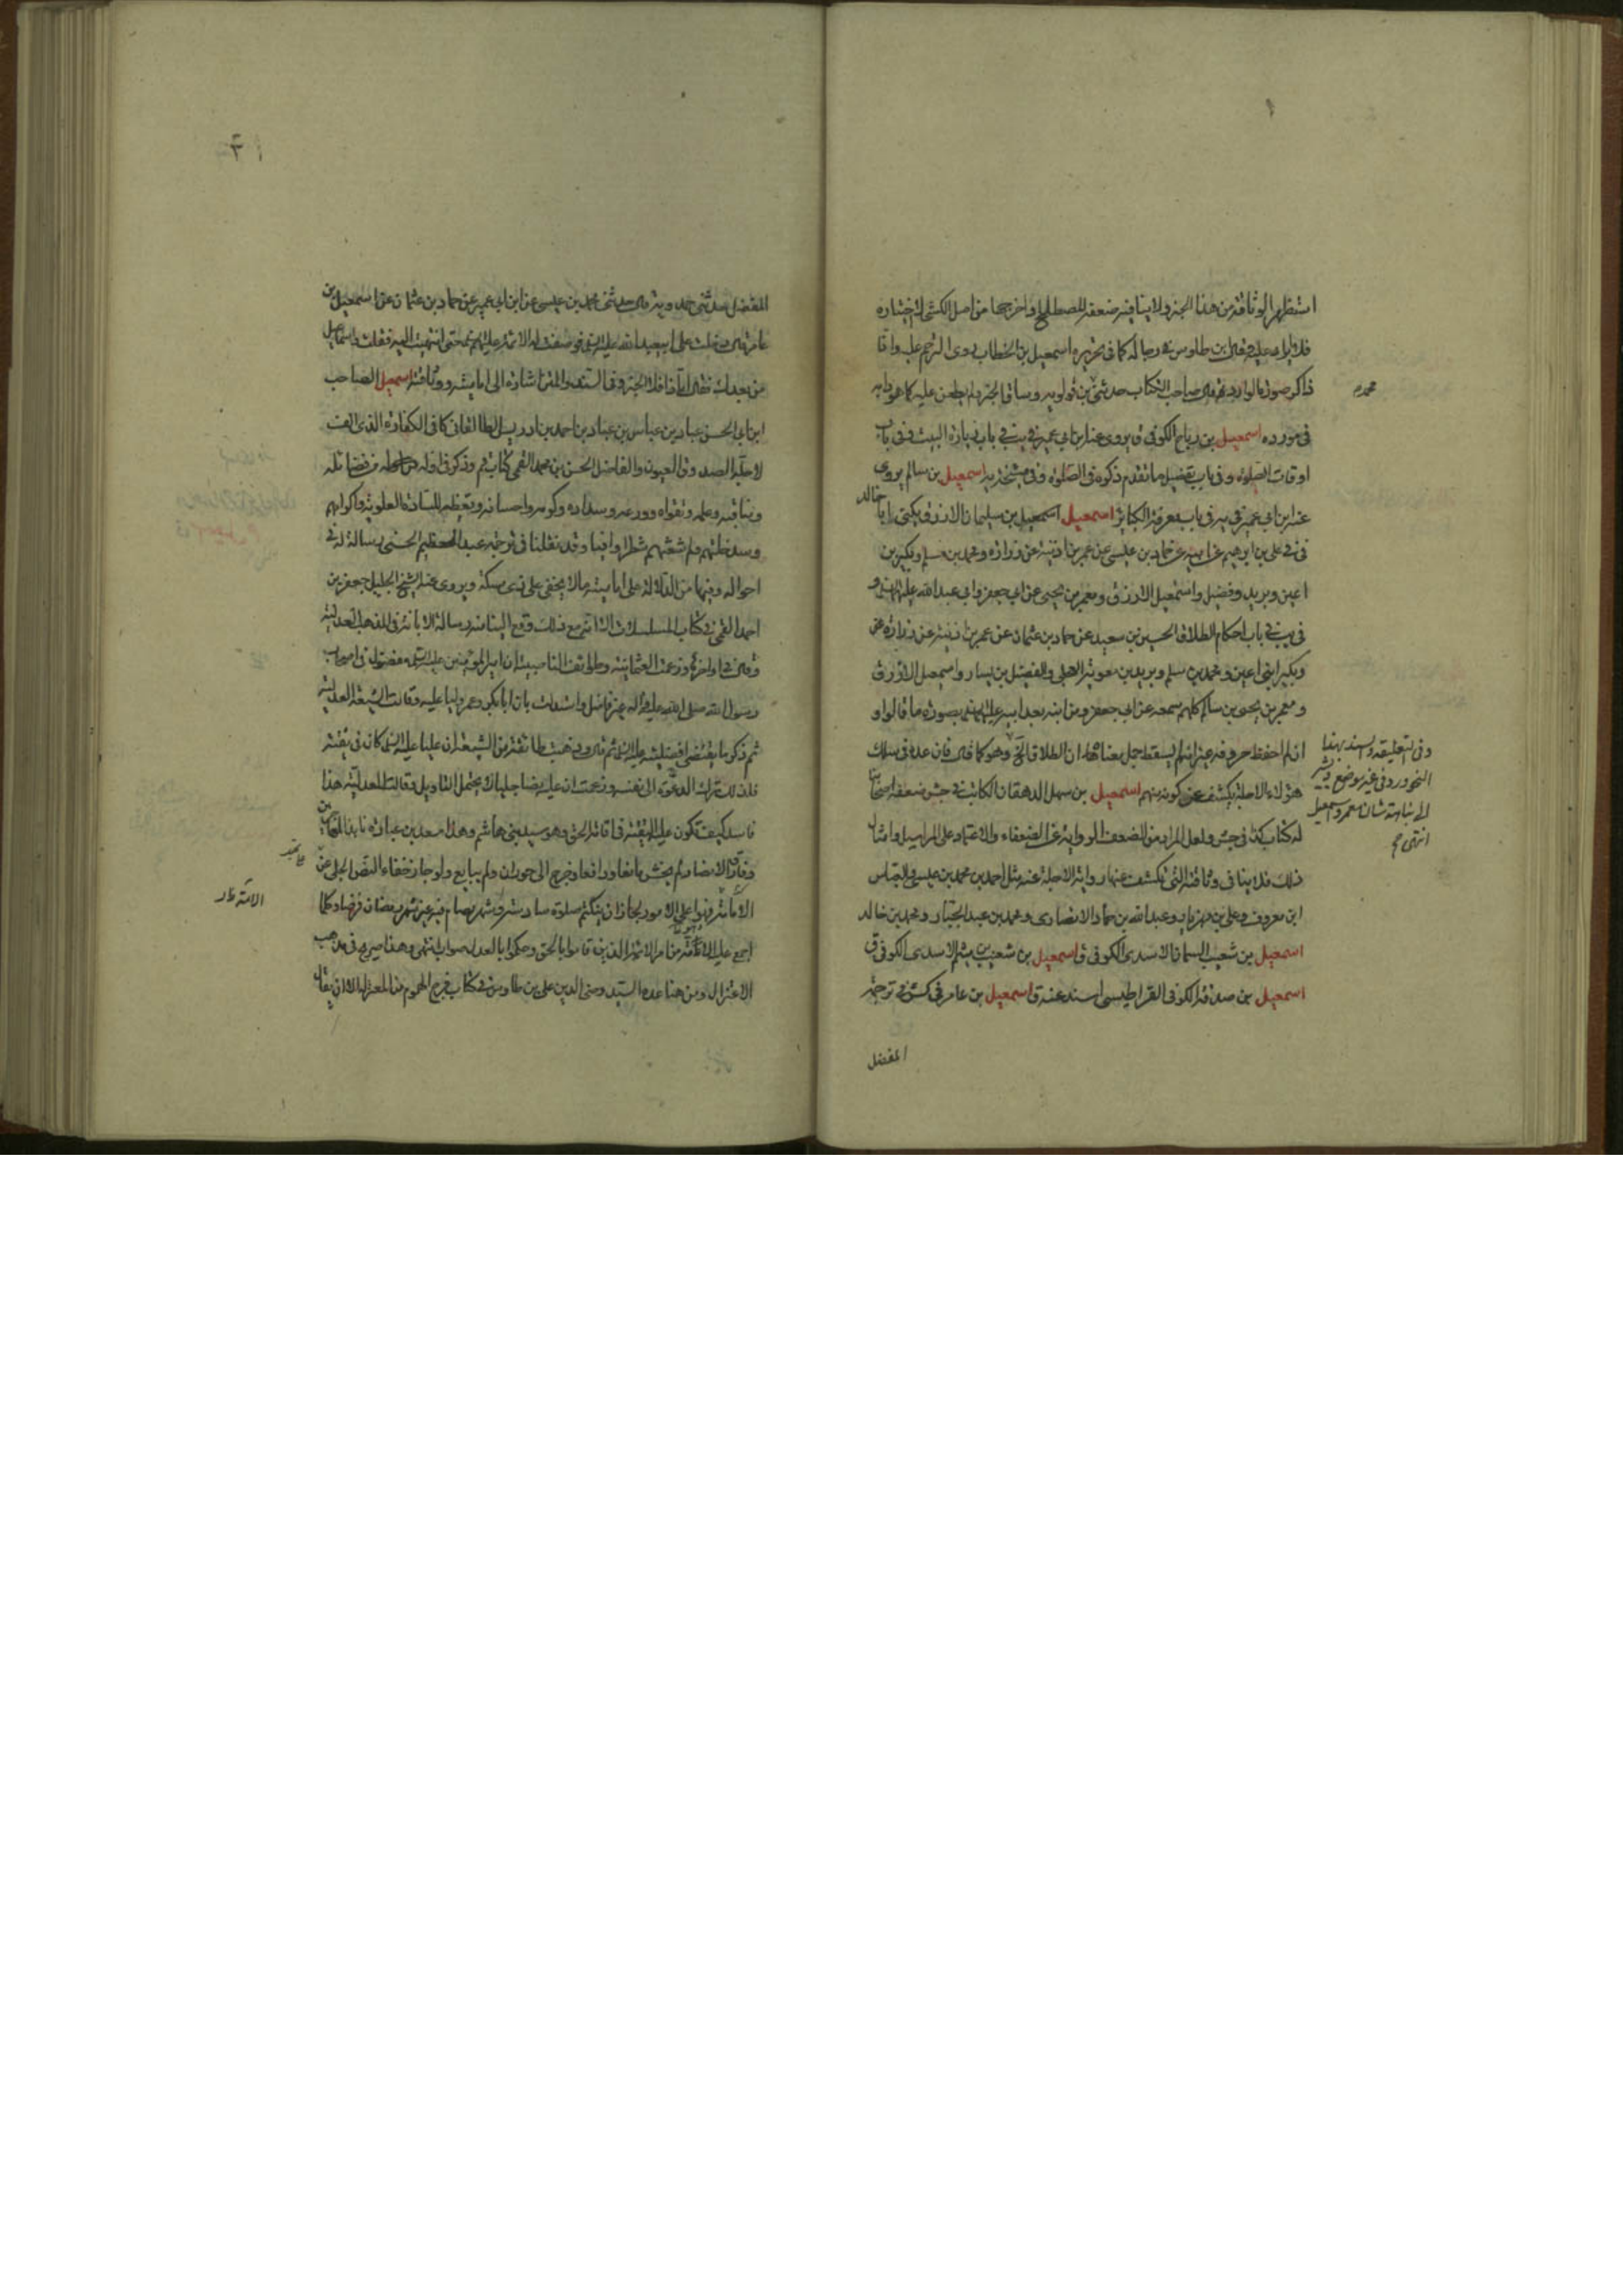 استظهر الوثاقة من هذا الخبر ولا ينافيه ضعفه المصطلح واخرجها من اصل الكشي اختياره
فلا ايراد عليه وقال ابن طاوس في رجاله كما في تحريره اسمعيل بن الخطاب روى الترحم عليه
ذاكر صورة الوارد ثم قال صاحب الكتاب حدثني بن قولويه وساق الخبر ولم يطعن عليه كما هو دابه
محمد
في مورده اسمعيل بن رباح الكوفي ق يروي عنه ابن ابي عمير في يب في باب زيارة البيت وفي في باب
اوقات الصلوة وفي باب تفضيل ما تقدم ذكره في الصلوة وفي اسمعيل بن سالم يروي
عنه ابن ابي عمير في يه في باب معرفة الكبائر اسمعيل اسمعيل بن سليمان الازرق يكنى ابا خالد
في في علي بن ابرهيم عن ابيه عن حماد بن عيسى عن عمر بن اذينة عن زرارة ومحمد بن مسلم وبكير بن
اعين وبريد وفضيل واسمعيل الازرق ومعمر بن يحيى عن ابي جعفر وابي عبد الله عليهما السلام و
في يب في باب احكام الطلاق الحسين بن سعيد عن حماد بن عثمان عن عمر بن اذينة عن زرارة عن
وبكير ابني اعين ومحمد بن مسلم وبريد بن معوية العجلي والفضيل بن يسار واسمعيل الازرق
ومعمر بن يحيى بن سالم كلهم سمعه عن ابي جعفر ومن ابنه بعد ابيه عليهم السلام بصورة ما قالوا و
ان لم احفظ حروفه غير انه لم يسقط جمل معناه ان الطلاق الخ وهو كما قال فان عده في سلك
هؤلاء الاجلة يكشف عن كونه منهم اسمعيل بن سهل الدهقان الكاتب في جش ضعفه اصحابنا
له كتاب كذا في جش ولعل المراد من الضعف الرواية عن الضعفاء والاعتماد على المراسيل وامثال
ذلك فلا ينافي وثاقته التي تكشف عنها رواية الاجلة عنه مثل احمد بن محمد بن عيسى والعباس
ابن معروف وعلي بن مهزيار وعبد الله بن حماد الانصاري ومحمد بن عبد الجبار ومحمد بن خالد
اسمعيل بن شعيب السمان الاسدي الكوفي ق اسمعيل بن شعيب بن ميثم الاسدي الكوفي ق
اسمعيل بن صدقة الكوفي القراطيسي اسند عنه ق اسمعيل بن عامر في كش في ترجمة
المفضل
وفي التعليقة والسند بهذا
النحو ورد في غير موضع ويشير
الى نباهة شان معمر واسمعيل
انتهى
المفضل حدثني حمدويه قال حدثني محمد بن عيسى عن ابن ابي عمير عن حماد بن عثمان عن اسمعيل بن
عامر قال دخلت على ابي عبد الله عليه السلام فوصفت له الائمة عليهم السلام حتى انتهيت اليه فقلت واسماعيل
من بعدك فقال اما ذا فلا الخبر وفي السند والمتن اشارة الى اماميته ووثاقته اسمعيل الصاحب
ابن ابي الحسن عباد بن عباس بن عباد بن احمد بن ادريس الطالقاني كافي الكفاة الذي الف
لاجله الصدوق العيون والفاضل الحسن بن محمد القمي كتاب قم وذكر في اوله من فضائله
ومناقبه وعلمه وتقواه وورعه وسداده وكرمه واحسانه وتعظيمه للسادة العلوية واكرامهم
وسد خلتهم ولم شعثهم شطرا وافيا وقد نقلنا في ترجمة عبد العظيم الحسني رسالة له في
احواله وفيها من الدلالة على اماميته ما لا يخفى على ذي مسكة ويروي عنه الشيخ الجليل جعفر بن
احمد القمي في كتاب المسلسلات الا انه مع ذلك وقع الينا منه رسالة الابانة في المذهب العدلية
وقال في اواخرها وزعمت العثمانية وطوائف الناصبية ان امير المؤمنين عليه السلام مفضول في اصحاب
رسول الله صلى الله عليه وآله غير فاضل واستدلت بان ابا بكر وعمر وليا عليه وقالت الشيعة العدلية
ثم ذكر ما يقتضي افضليته عليه السلام ثم قال وذهبت طائفة من الشيعة ان عليا عليه السلام كان في تقية
فلذلك ترك الدعوة الى نفسه وزعمت ان عليه نصا جليا لا يحتمل التاويل وقالت العدلية هذا
فاسد كيف تكون عليه التقية في اقامة الحق وهو سيد بني هاشم وهذا سعد بن عبادة نابذ المهاجرين
وفارق الانصار لم يخش مانعا ودافعا وخرج الى حوران ولم يبايع ولو جاز خفاء النص الجلي عن
الامة في على الامور لجاز ان ينكتم صلوة سادسة وشهر يصام فيه غير شهر رمضان فرضا وكلما
الامة ظ
اجمع عليه الامة من امر الائمة الذين قاموا بالحق وحكموا بالعدل صواب انتهى وهذا صريح في مذهب
الاعتزال ومن هنا عده السيد رضي الدين علي بن طاوس في كتاب فرج المهموم من المعتزلة الا ان يقال